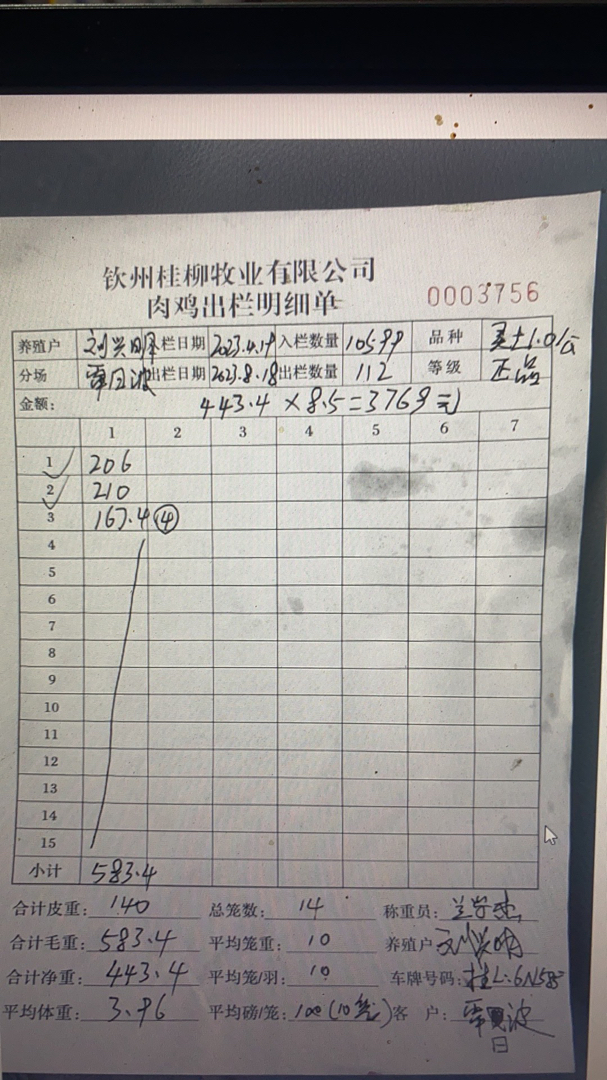 钦州桂柳牧业有限公司
肉鸡出栏明细单 0003756
养殖户 刘兴明 栏日期 2023.4.19 入栏数量 10599 品种 土1.0公
分场 覃日波 出栏日期 2023.8.18 出栏数量 112 等级 正品
金额: 443.4×8.5=3769元
1 2 3 4 5 6 7
1 206
2 210
3 167.4 ④
4
5
6
7
8
9
10
11
12
13
14
15
小计 583.4
合计皮重: 140 总笼数: 14 称重员:
合计毛重: 583.4 平均笼重: 10 养殖户 刘兴明
合计净重: 443.4 平均笼/羽: 10 车牌号码: 桂L·6N585
平均体重: 3.96 平均磅/笼: 100(10笼) 客 户: 覃日波
日